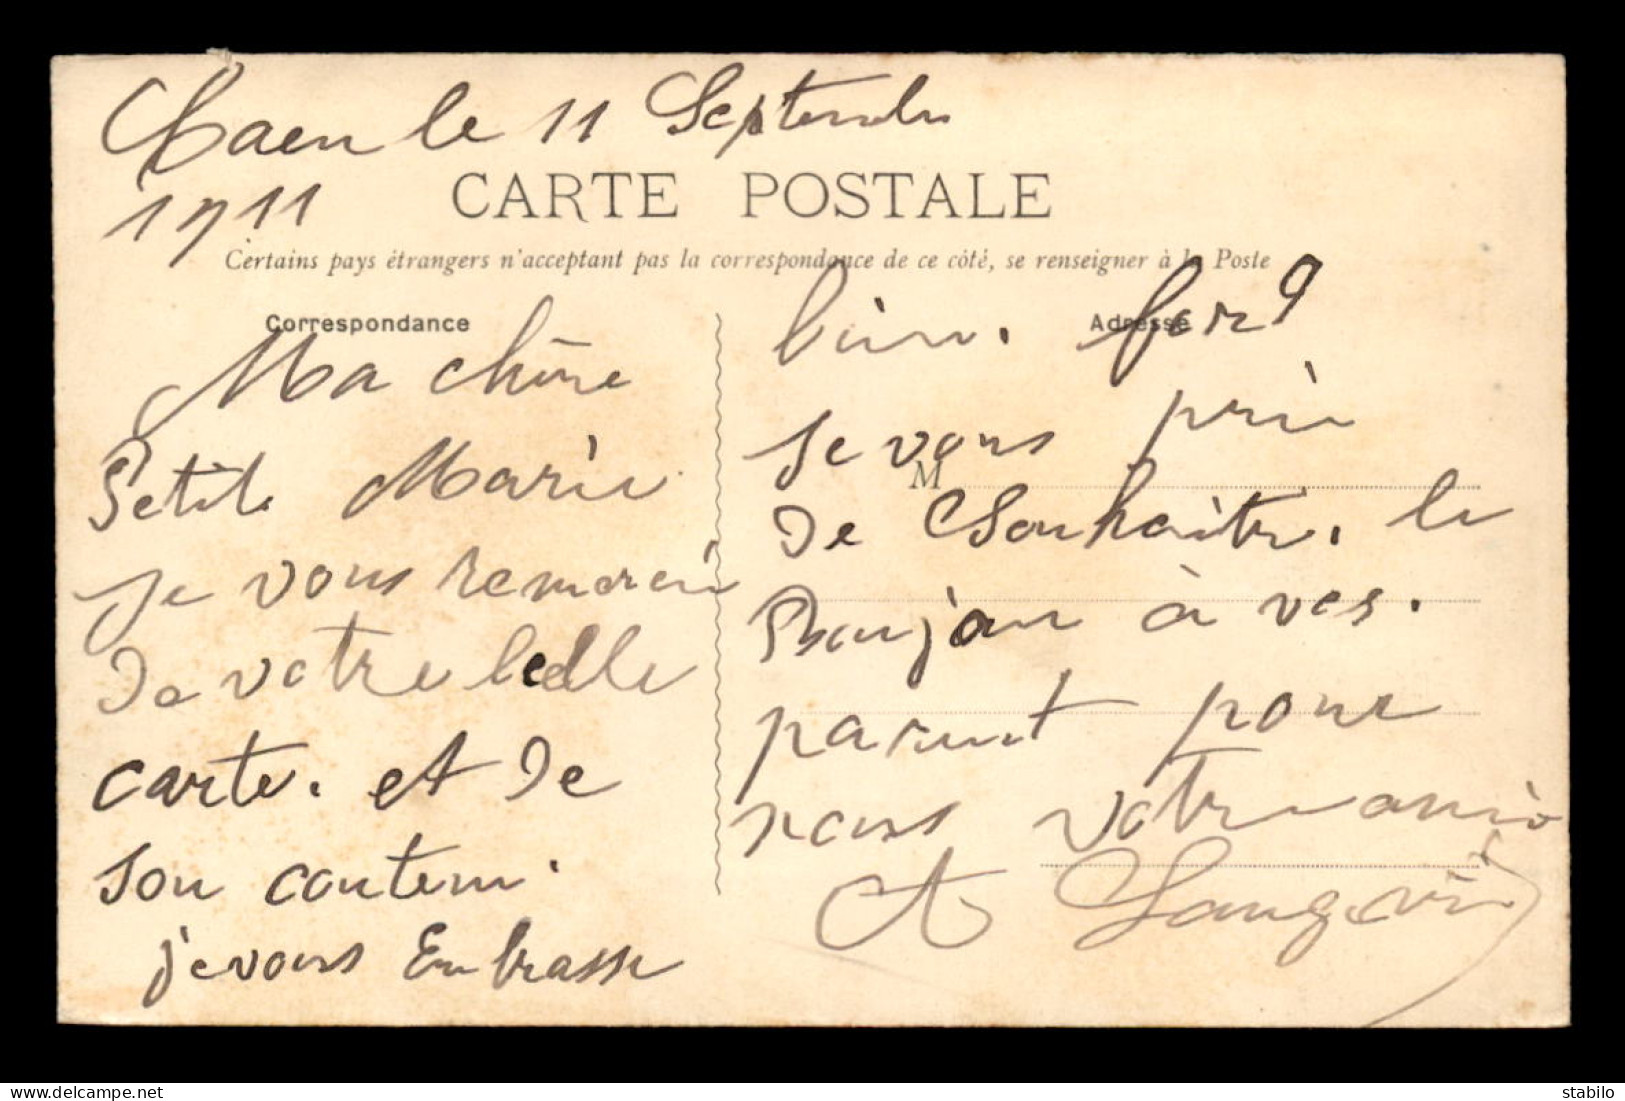 Caen le 11 Septembre
1911
CARTE POSTALE
Certains pays étrangers n'acceptant pas la correspondance de ce côté, se renseigner à la Poste
Correspondance
Ma chère
Petite Marie
je vous remercie
de votre belle
carte. et de
son contenu.
je vous Embrasse
Adresse
bien. fort
je vous prie
M
de Souhaiter. le
Bonjour à vos.
parent pour
nous votre amie
A Langevin
stabilo